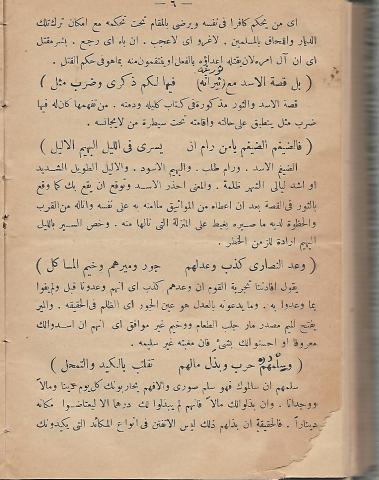 — ٦ —
اى من يحكم كافرا فى نفسه ويرضى بالمقام تحت تحكمه مع امكان ترك تلك
الديار واللحاق بالمسلمين . لاغرو اى لاعجب . ان باء اى رجع . بشر مقتل
اى ان آل امره لان قتله اعداؤه بالفعل او ينتقمون منه بما هو فى حكم القتل .
( بل قصة الاسد مع ( ثيرانه ) فيها لكم ذكرى وضرب مثل )
قصة الاسد والثور مذكورة فى كتاب كليله ودمنه . من تفهمها كان له فيها
ضرب مثل ينطبق على حالته واقامته تحت سيطرة من لا يجانسه .
( فالضيغم الضيغم يامن رام ان يسرى فى الليل البهيم الاليل )
الضيغم الاسد . ورام طلب . والبهيم الاسود . والاليل الطويل الشديد
او اشد ليالى الشهر ظلمة . والمعنى احذر الاسد وتوقع ان يقع بك كما وقع
بالثور فى القصة بعد ان اعطاه من المواثيق ما امنه به على نفسه واناله من القرب
والحظوة لديه ما صيره يغبط على المنزلة التى نالها منه . وخص السير بالليل
البهيم ارادة للزمن الخطر .
( وعد النصارى كذب وعدلهم جور وميرهم وخيم المأكل )
يقول افادتنا تجربة القوم ان وعدهم كذب اى انهم وعدونا قبل ولم يفوا
بما وعدوا به . وما يدعونه بالعدل هو عين الجور اى الظلم فى الحقيقة . والمير
بفتح الميم مصدر مار جلب الطعام ووخيم غير موافق اى انهم ان اسدوا لك
معروفا او احسنوا لك بشئ فان مغبته غير سليمه .
( وسلمهم حرب وبذل مالهم تقلب بالكيد والتمحل )
سلمهم ان سالموك فهو سلم صورى والا فهم يحاربونك كل يوم دينا ومالاً
ووجدانا . وان بذلوا لك مالا فانهم لم يبذلوا لك درهما الا ليعتاضوا مكانه
ديناراً . فالحقيقة ان بذلهم ذلك ليس الا تفنن فى انواع المكائد التى يكيدونك